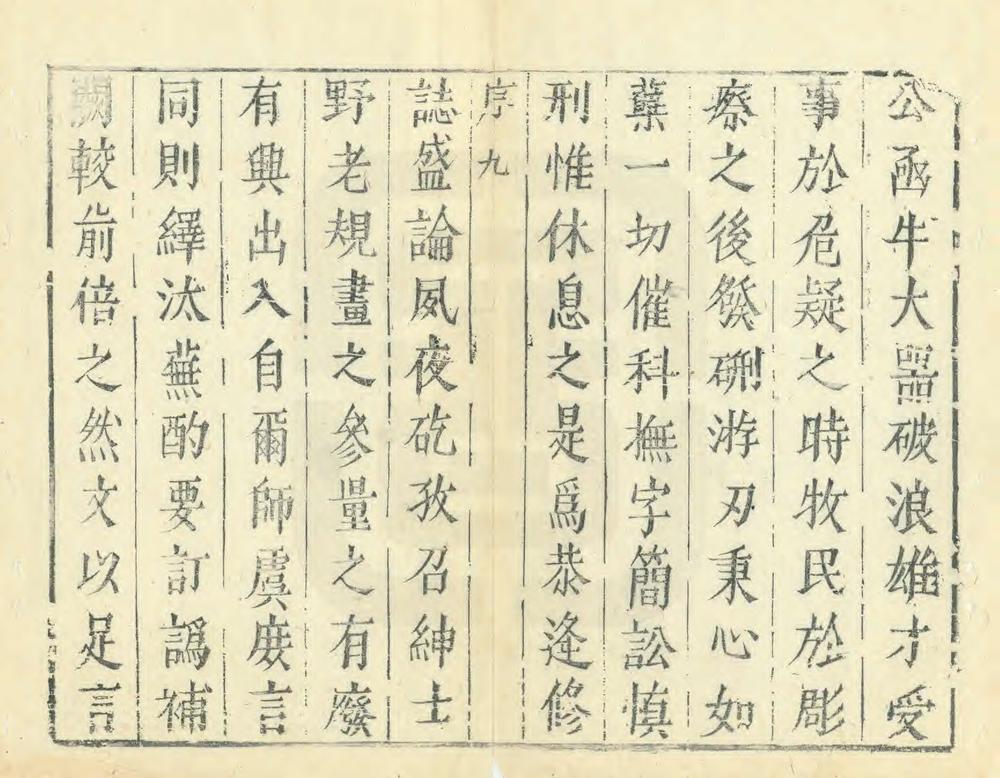 公函牛大器破浪雄才受
事於危疑之時牧民於彫
瘵之後發硎游刃秉心如
蘖一切催科撫字簡訟慎
刑惟休息之是爲恭逢修
序 九
誌盛論夙夜矻孜召紳士
野老規畫之參量之有廢
有興出入自爾師虞庻言
同則繹汰蕪酌要訂譌補
闕較前倍之然文以足言